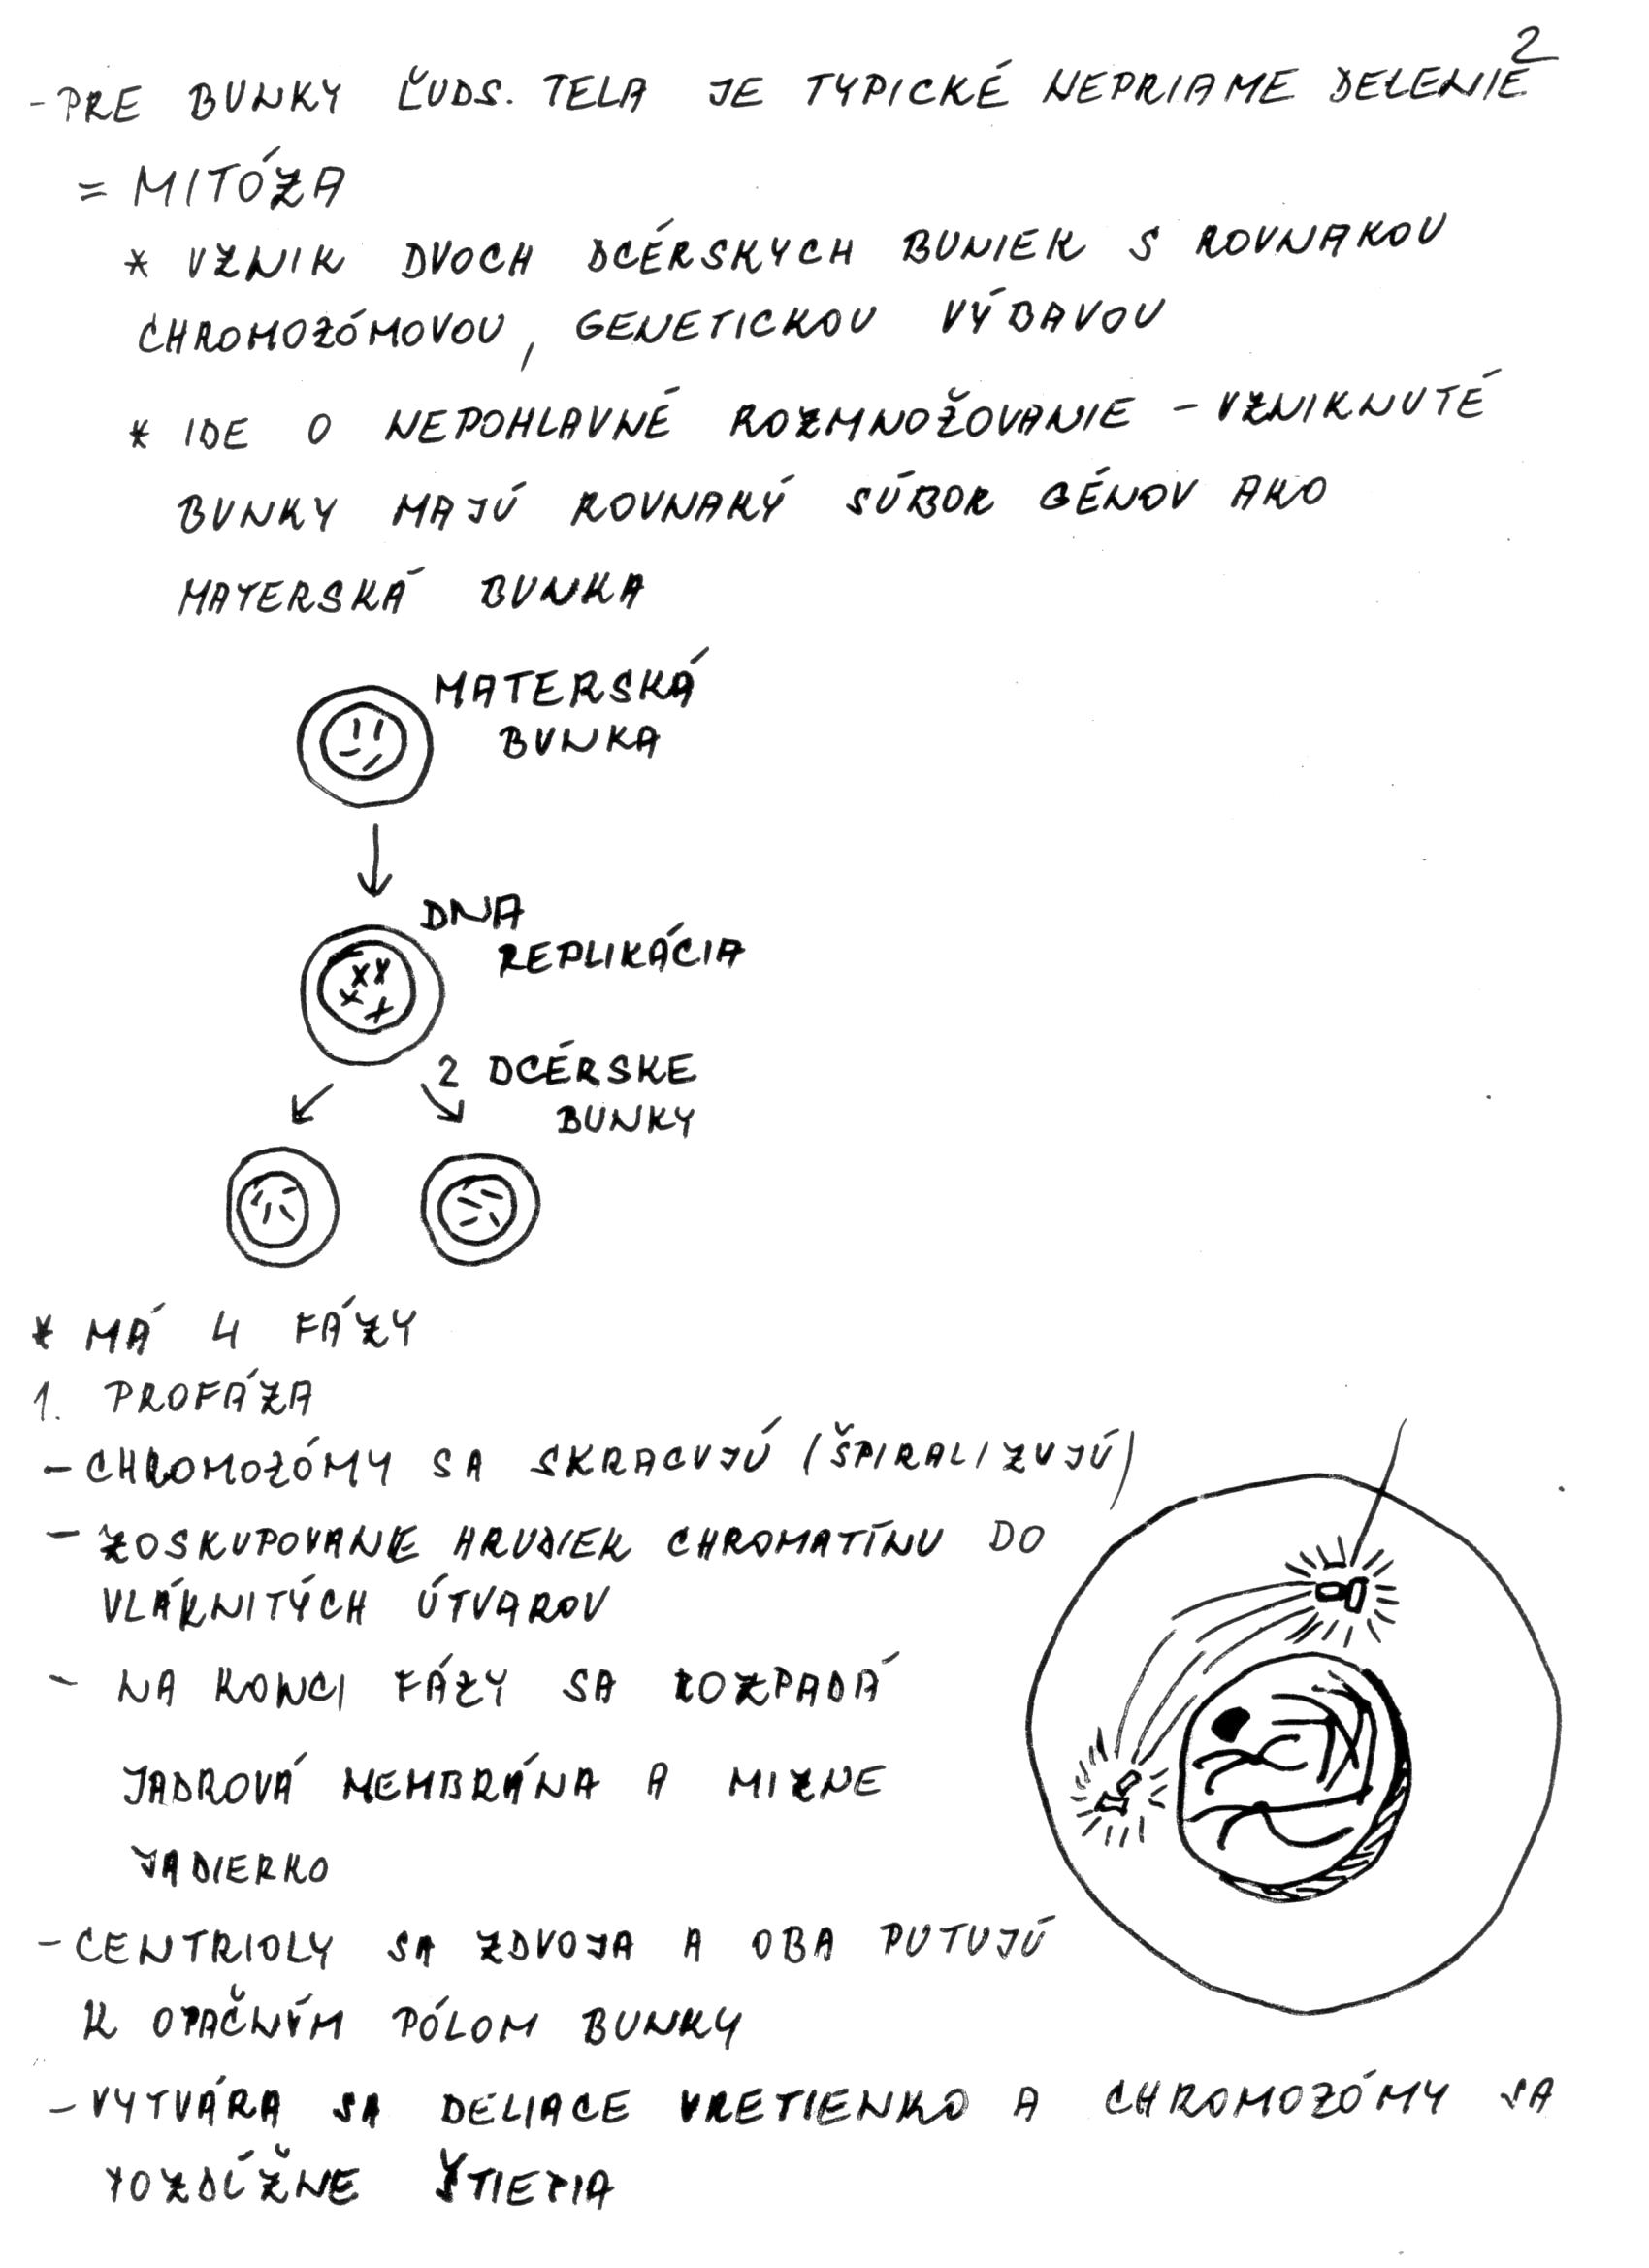 2
- PRE BUNKY ĽUDS. TELA JE TYPICKÉ NEPRIAME DELENIE
= MITÓZA
* VZNIK DVOCH DCÉRSKYCH BUNIEK S ROVNAKOU
CHROMOZÓMOVOU, GENETICKOU VÝBAVOU
* IDE O NEPOHLAVNÉ ROZMNOŽOVANIE - VZNIKNUTÉ
BUNKY MAJÚ ROVNAKÝ SÚBOR GÉNOV AKO
MATERSKÁ BUNKA
MATERSKÁ
BUNKA
DNA
REPLIKÁCIA
2 DCÉRSKE
BUNKY
* MÁ 4 FÁZY
1. PROFÁZA
- CHROMOZÓMY SA SKRACUJÚ (ŠPIRALIZUJÚ)
- ZOSKUPOVANIE HRUDIEK CHROMATÍNU DO
VLÁKNITÝCH ÚTVAROV
- NA KONCI FÁZY SA ROZPADÁ
JADROVÁ MEMBRÁNA A MIZNE
JADIERKO
- CENTRIOLY SA ZDVOJA A OBA PUTUJÚ
K OPAČNÝM PÓLOM BUNKY
- VYTVÁRA SA DELIACE VRETIENKO A CHROMOZÓMY SA
POZDĹŽNE ŠTIEPIA